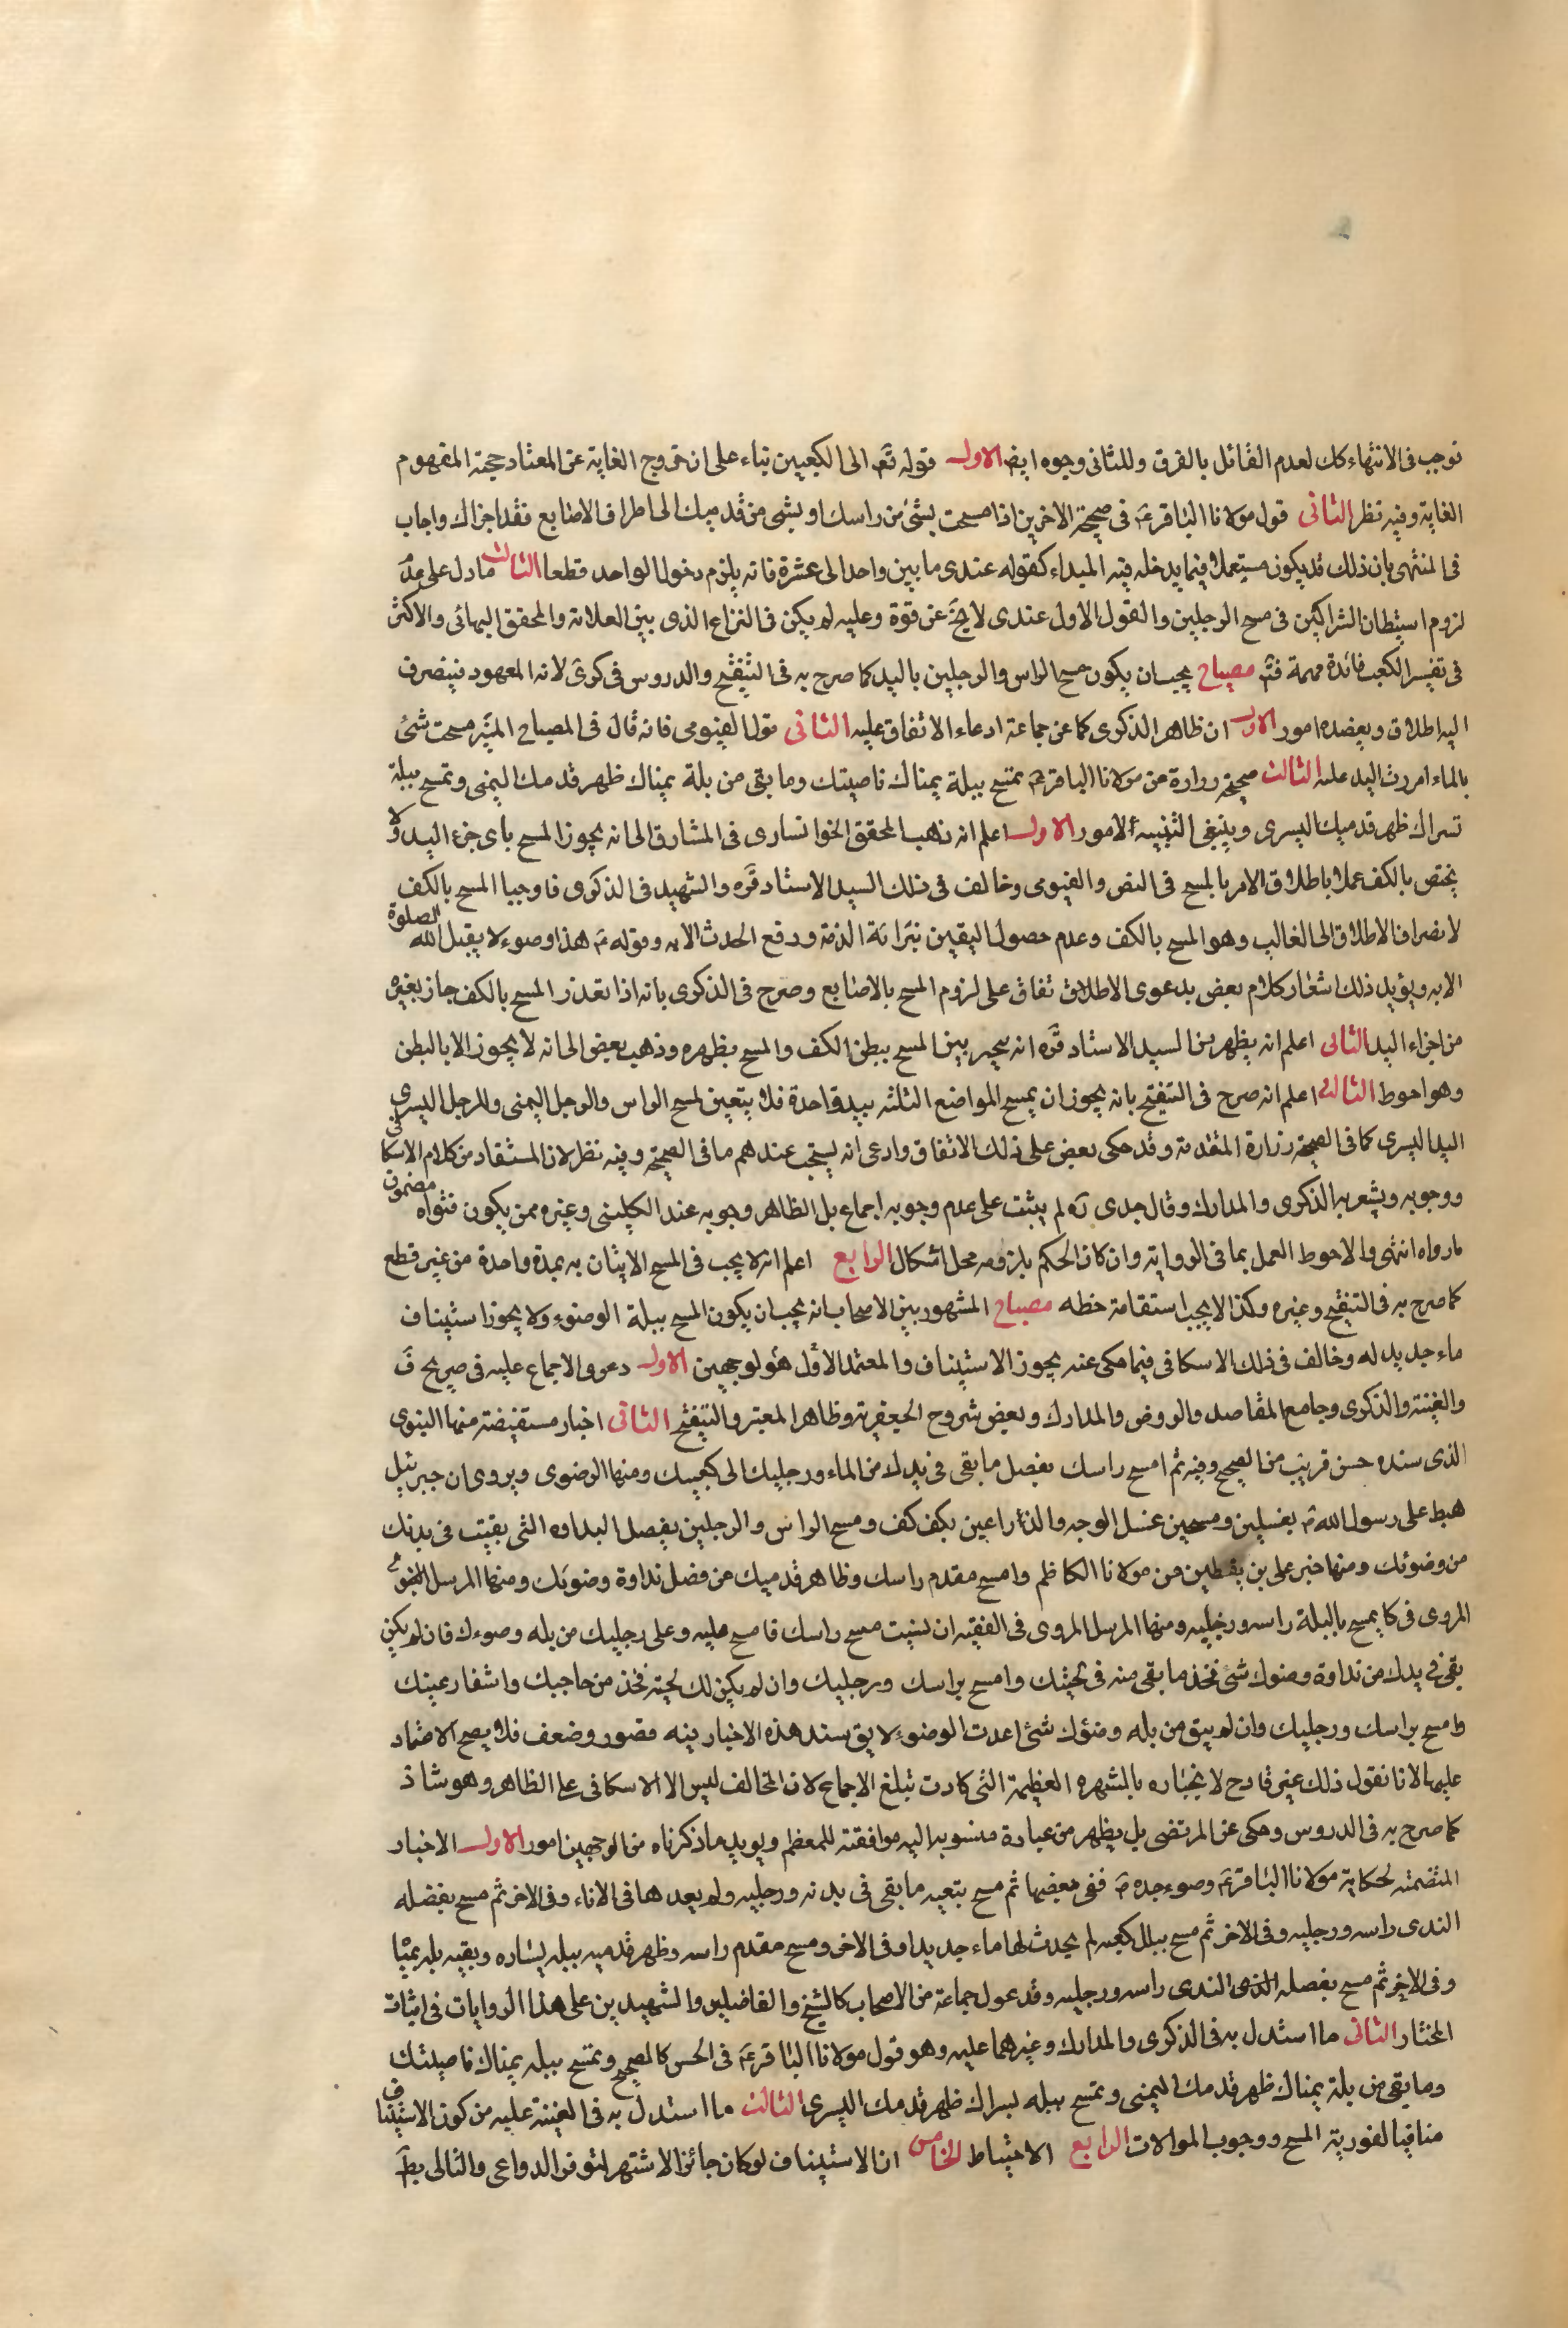 توجب فى الانتهاء كك لعدم القائل بالفرق وللثانى وجوه ايض الاول قوله تع الى الكعبين بناء على ان خروج الغاية عن المعتاد حجية المفهوم
الغاية وفيه نظر الثانى قول مولانا الباقر ع فى صحيحة الاخرين اذا مسحت بشئ من راسك او بشى من قدميك الى اطراف الاصابع فقد اجزاك واجاب
فى المنتهى بان ذلك قد يكون مستعملا فيما يدخله فيه المبداء كقوله عندى ما بين واحد الى عشرة فانه يلزم دخول الواحد قطعا الثالث ما دل على عدم
لزوم استبطان الشراكين فى مسح الرجلين والقول الاول عندى لا يخ عن قوة وعليه لم يكن فى النزاع الذى بين العلامة والمحقق البهائى والاكثر
فى تفسير الكعب فائدة مهمة فتم مصباح يجب ان يكون مسح الراس والرجلين باليد كما صرح به فى التنقيح والدروس فى كرى لانه المعهود فينصرف
اليه اطلاق ويعضده امور الاول ان ظاهر الذكرى كما عن جماعة ادعاء الاتفاق عليه الثانى قول الفيومى فانه قال فى المصباح المنير مسحت شئ
بالماء امررت اليد عليه الثالث صحيحة زرارة عن مولانا الباقر ع تمسح ببلة يمناك ناصيتك وما بقى من بلة يمناك ظهر قدمك اليمنى وتمسح ببلة
تسراك ظهر قدميك اليسرى وينبغى التنبيه لامور الاول اعلم انه ذهب المحقق الخوانسارى فى المشارق الى انه يجوز المسح باى جزء اليد ولا
يختص بالكف عملا باطلاق الامر بالمسح فى النص والفيومى وخالف فى ذلك السيد الاستاد قره والشهيد فى الذكرى فاوجبا المسح بالكف
لانصراف الاطلاق الى الغالب وهو المسح بالكف وعدم حصول اليقين ببرائة الذمة ورفع الحدث الا به وقوله ع هذا وضوء لا يقبل الله الصلوة
الا به ويؤيد ذلك اشعار كلام بعض بدعوى الاطلاق تفاق على لزوم المسح بالاصابع وصرح فى الذكرى بانه اذا تعذر المسح بالكف جاز بغيره
من اجزاء اليد الثانى اعلم انه يظهر من السيد الاستاد قره انه يخير بين المسح ببطن الكف والمسح بظهره وذهب بعض الى انه لا يجوز الا بالبطن
وهو احوط الثالث اعلم انه صرح فى التنقيح بانه يجوز ان يمسح المواضع الثلثه بيد واحدة فلا يتعين لمسح الراس والرجل اليمنى وللرجل اليسرى
اليد اليسرى كما فى الصحيحة زرارة المتقدمة وقد حكى بعض على ذلك الاتفاق وادعى انه يستحب عندهم ما فى الصحيحة وفيه نظر لان المستفاد من كلام الاسكافى
ووجوبه ويشعر به الذكرى والمدارك وقال جدى ره لم يثبت على عدم وجوبه اجماع بل الظاهر وجوبه عند الكلينى وغيره ممن يكون فتواه مضمون
ما رواه انتهى والاحوط العمل بما فى الرواية وان كان الحكم بلزومه محل اشكال الرابع اعلم انه لا يجب فى المسح الاتيان به بمدة واحدة من غير قطع
كما صرح به فى التنقيح وغيره وكذا لا يجب استقامة خطه مصباح المشهور بين الاصحاب انه يجب ان يكون المسح ببلة الوضوء ولا يجوز استيناف
ماء جديد له وخالف فى ذلك الاسكافى فيما حكى عنه يجوز الاستيناف والمعتمد الاول هو لوجهين الاول دعوى الاجماع عليه فى صريح ف
والغنية والذكرى وجامع المقاصد والروض والمدارك وبعض شروح الجعفرية وظاهر المعتبر والتنقيح الثانى اخبار مستفيضة منها النبوى
الذى سنده حسن قريب من الصحيح وفيه ثم امسح راسك بفضل ما بقى فى يدك من الماء ورجليك الى كعبيك ومنها الرضوى ويروى ان جبرئيل
هبط على رسول الله ص بغسلين ومسحين غسل الوجه والذراعين بكف كف ومسح الراس والرجلين بفضل البداوه التى بقيت فى يدك
من وضوئك ومنها خبر على بن يقطين من مولانا الكاظم وامسح مقدم راسك وظاهر قدميك من فضل نداوة وضوئك ومنها المرسل
المروى فى كا يمسح بالبلة راسه ورجليه ومنها المرسل المروى فى الفقيه ان نسيت مسح راسك فامسح عليه وعلى رجليك من بله وضوءك فان لم يكن
بقى فى يدك من نداوة وضوك شئ فخذ ما بقى منه فى لحيتك وامسح براسك ورجليك وان لم يكن لك لحية فخذ من حاجبك واشفار عينك
وامسح براسك ورجليك وان لم يبق من بله وضؤك شئ اعدت الوضوء لا يق سند هذه الاخبار فيه قصور وضعف فلا يصح الاعتماد
عليها لانا نقول ذلك غير قادح لانجباره بالشهره العظيمة التى كادت تبلغ الاجماع لان المخالف ليس الا الاسكافى على الظاهر وهو شاذ
كما صرح به فى الدروس وحكى عن المرتضى بل يظهر من عبادة منسوبه اليه موافقته للمعظم ويويد ما ذكرناه من الوجهين امور الاول الاخبار
المتضمنه لحكاية مولانا الباقر ع وضوء جده ص ففى بعضها ثم مسح بتعيه ما بقى فى يدنه ورجليه ولم يعدهما فى الاناء وفى الاخر ثم مسح بفضله
الندى راسه ورجليه وفى الاخر ثم مسح ببلل كعبه لم يحدث لها ماء جديدا وفى الاخر ومسح مقدم راسه وظهر قدميه ببله يساره وبقيه بله يمينا
وفى الاخر ثم مسح بفضله الندى الندى راسه ورجليه وقد عول جماعة من الاصحاب كالشيخ والفاضلين والشهيدين على هذا الروايات فى اثبات
المختار الثانى ما استدل به فى الذكرى والمدارك وغيرهما عليه وهو قول مولانا الباقر ع فى الحسن كالصحيح وتمسح ببله يمناك ناصيتك
وما بقى من بلة يمناك ظهر قدمك اليمنى وتمسح ببله يسراك ظهر قدمك اليسرى الثالث ما استدل به فى الغنية عليه من كون الاستيناف
منافيا لفورية المسح ووجوب الموالات الرابع الاحتياط الخامس ان الاستيناف لو كان جائز الاشتهر لتوفر الدواعى والتالى بط